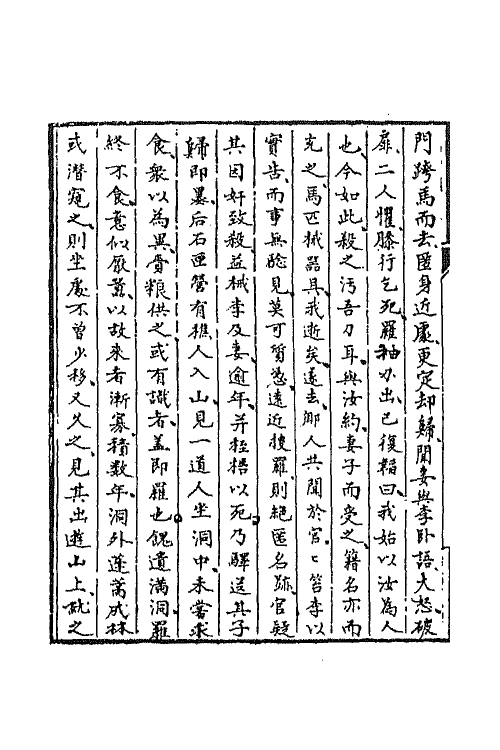 門跨馬而去匿身近處更定却歸聞妻與李臥語大怒破
扉二人懼膝行乞死羅抽刀出已復韜曰我始以汝為人
也今如此殺之污吾刀耳與汝約妻子而受之籍名亦而
充之馬匹械器具我逝矣遂去鄉人共聞於官〻笞李以
實告而事無驗見莫可質憑遠近搜羅則絕匿名跡官疑
其因奸致殺益械李及妻逾年并桎梏以死乃驛送其子
歸即墨后石匣營有樵人入山見一道人坐洞中未嘗求
食衆以為異賫糧供之或有識者蓋即羅也餽遺滿洞羅
終不食意似厭囂以故來者漸寡積數年洞外蓬蒿成林
或潛窺之則坐處不曾少移又久之見其出遊山上就之